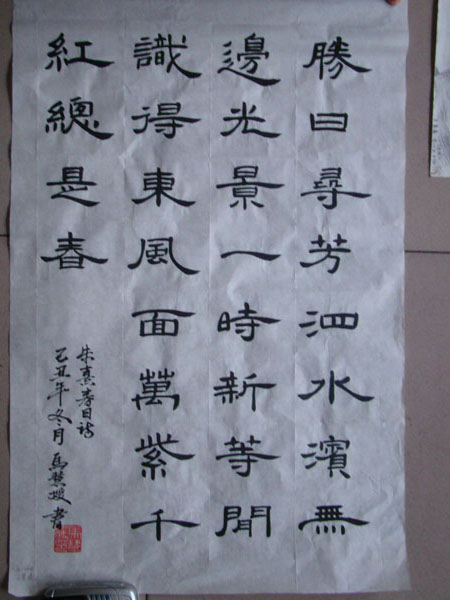 勝日尋芳泗水濱無
邊光景一時新等閒
識得東風面萬紫千
紅總是春
朱熹春日詩
己丑年冬月 馬慧 書